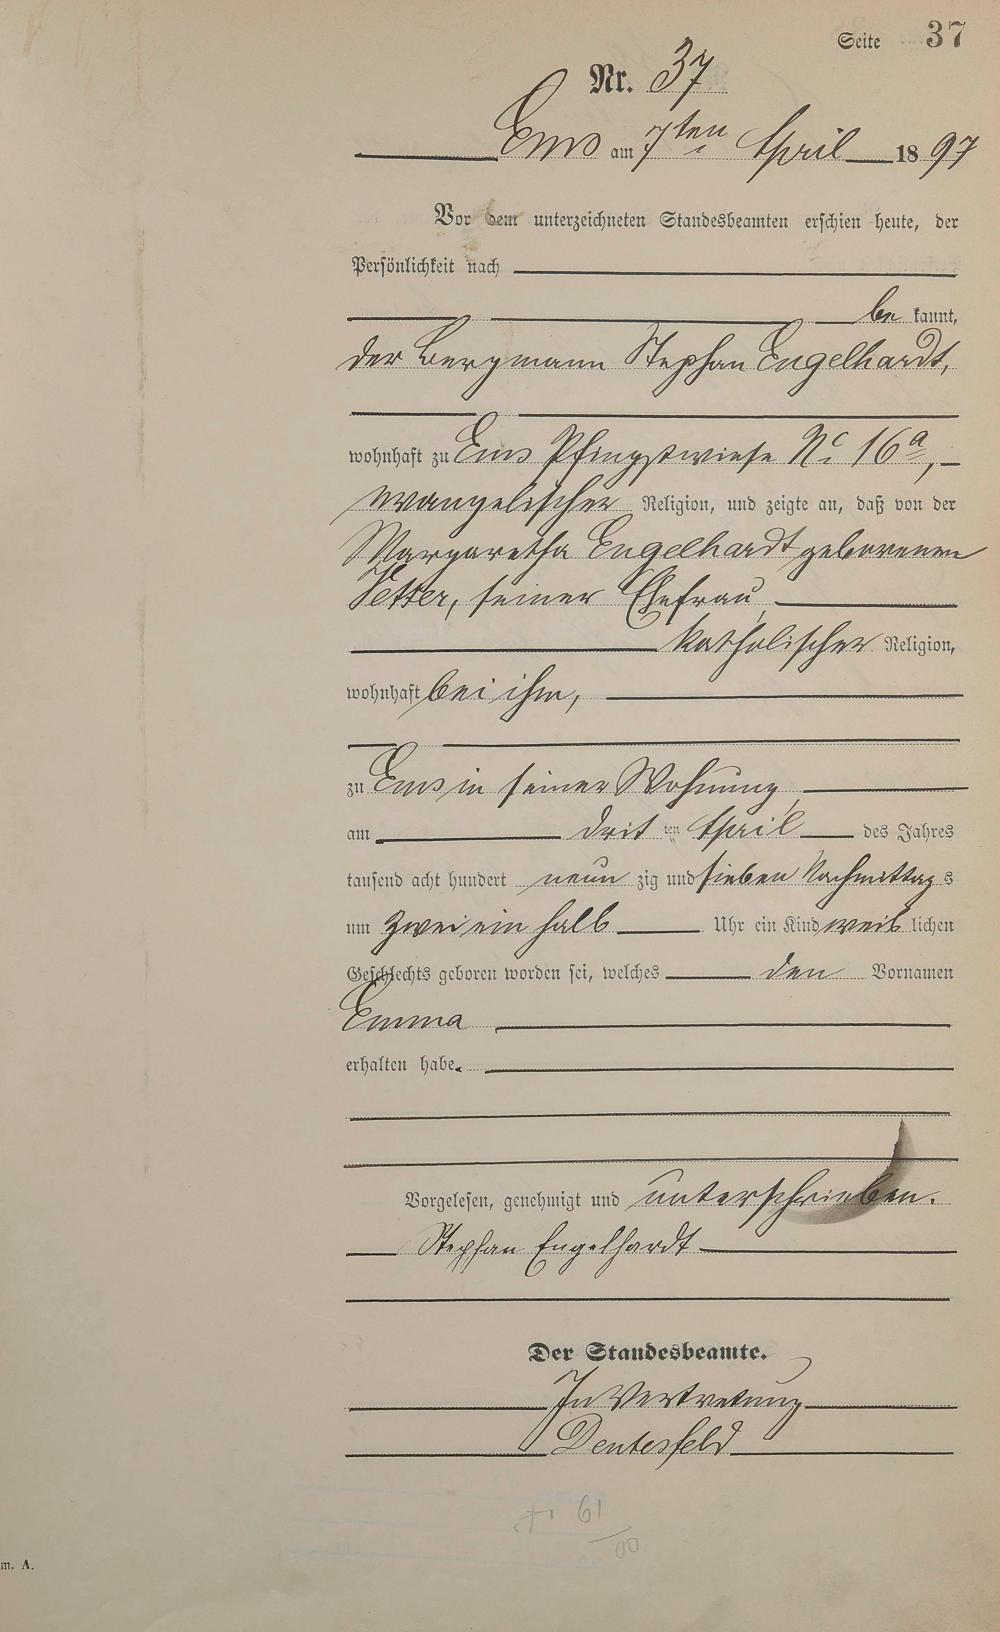 Seite 37
Nr. 37
Ems am 7ten April 1897
Vor dem unterzeichneten Standesbeamten erschien heute, der
Persönlichkeit nach
bekannt,
der Bergmann Stephan Engelhardt,
wohnhaft zu Ems Pfingstwiese No 16a,
evangelischer Religion, und zeigte an, daß von der
Margaretha Engelhardt geborenen
Vetter, seiner Ehefrau,
katholischer Religion,
wohnhaft bei ihm,
zu Ems in seiner Wohnung,
am dritten April des Jahres
tausend acht hundert neunzig und sieben Nachmittags
um zwei ein halb Uhr ein Kind weiblichen
Geschlechts geboren worden sei, welches den Vornamen
Emma
erhalten habe.
Vorgelesen, genehmigt und unterschrieben.
Stephan Engelhardt
Der Standesbeamte.
In Vertretung
m. A.